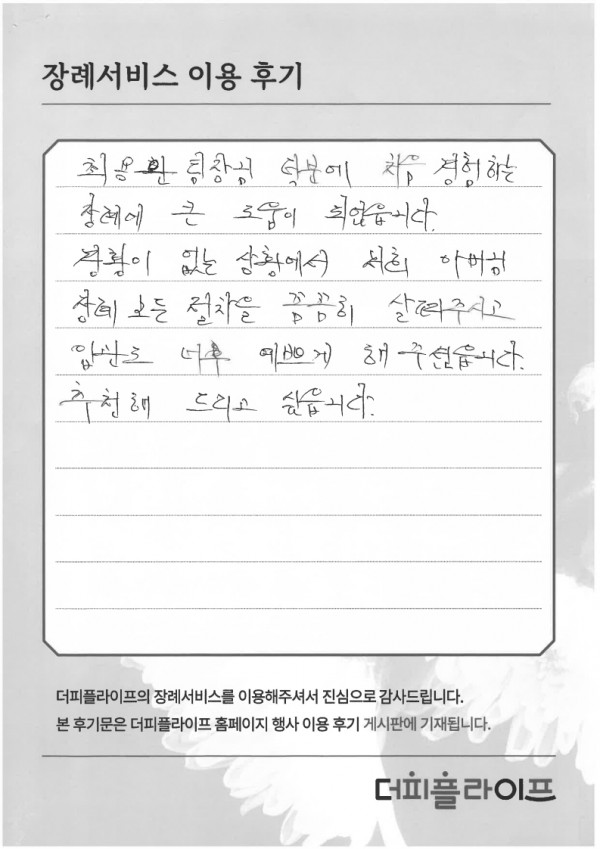 장례서비스 이용 후기
최용환 팀장님 덕분에 처음 경험하는
장례에 큰 도움이 되었읍니다.
경황이 없는 상황에서 저희 아버님
장례 모든 절차를 꼼꼼히 살펴주시고
입관도 너무 예쁘게 해 주셨읍니다.
추천해 드리고 싶읍니다.
더피플라이프의 장례서비스를 이용해주셔서 진심으로 감사드립니다.
본 후기문은 더피플라이프 홈페이지 행사 이용 후기 게시판에 기재됩니다.
더피플라이프